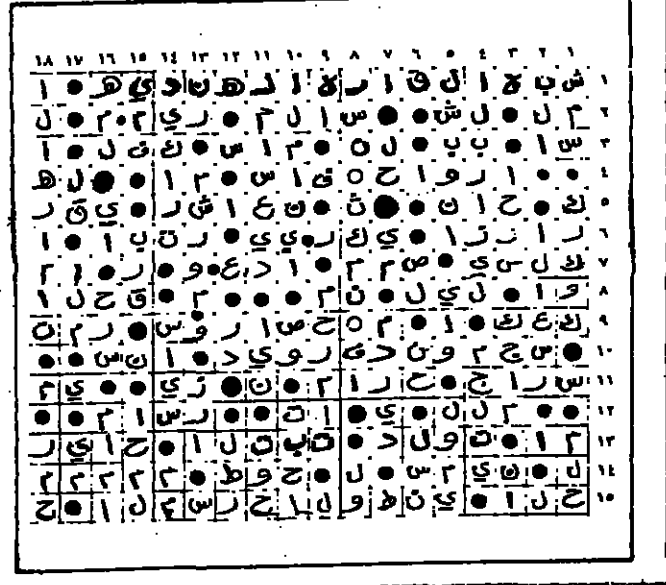 ١ ٢ ٣ ٤ ٥ ٦ ٧ ٨ ٩ ١٠ ١١ ١٢ ١٣ ١٤ ١٥ ١٦ ١٧ ١٨
١ ش ب ه ا ل ق ا ر ه ا ل ه ن د ي ه ● ا
٢ م ل ● ل ش ● ● س ا ل م ● ر ي م م ● ل
٣ س ا ● ب ب ● ل ه ● م ا س ● ك ف ل ● ا
٤ ● ● ا ر و ا ح ه ف ا س ● م ا ● ● ل ه
٥ ك ● ح ا ن ● ● ث ● ن ع ا ش ر ● ي ق ر
٦ ر ا ن ز ا ● ي ك ر ي ي ● ر ت ب ا ● ا
٧ ك ل س ي ● ص م م ● ا د ع و ● ر ● ا م
٨ و ا ● ل ي ل ● ن م ● ● ● م ● ق ح ل ا
٩ ك ع ك ● ا ● م ه ح ص ا ر و س ● ر م ن
١٠ ● س ج م و ن د ف ر و ي د ● ا ن س ● ●
١١ س ر ا ج ● ح ر ا م ● ن ● ز ي ● ● ي م
١٢ ● ● م ل ل ● ي ● ا ت ● ● ر س ا م ● ●
١٣ م ا ● ت و ل د ● ت ب ت ل ا ● ح ا ي ر
١٤ ل ● ن ي م س ● ل ● ح و ط ● م م م م م
١٥ ح ل ا ● ي ن ط و ل ا ح ر س م ل ا ● ح